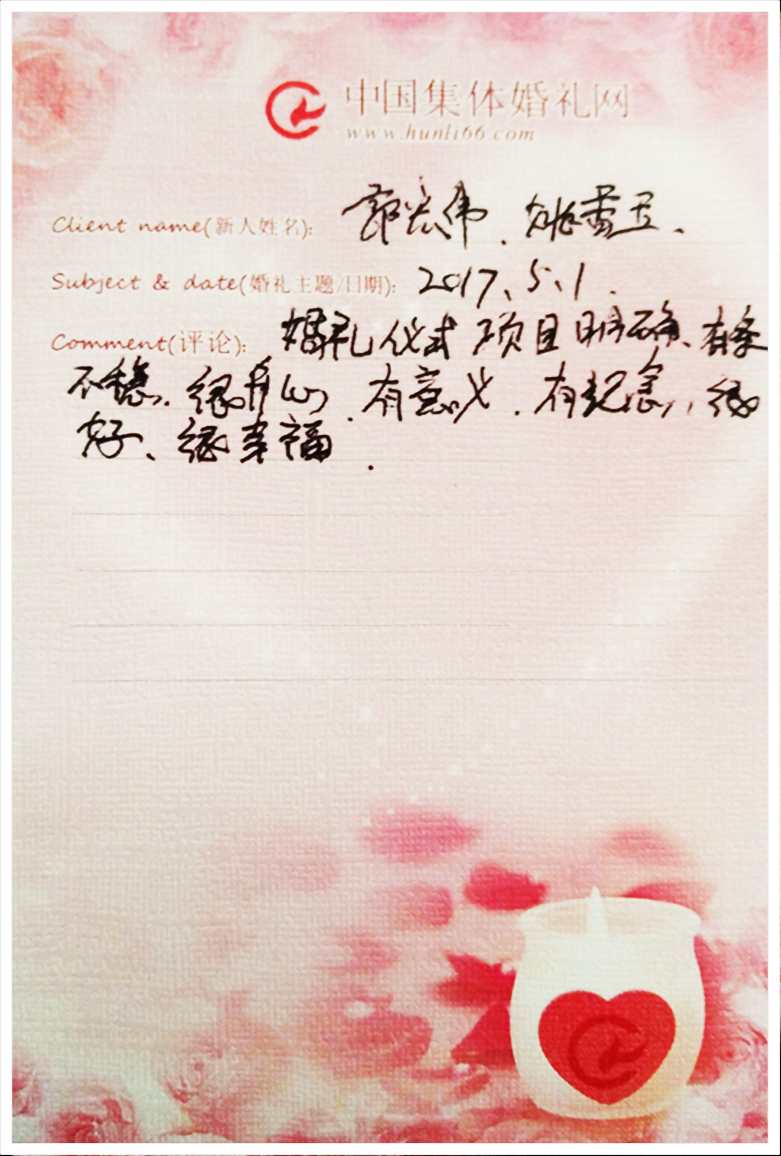 中国集体婚礼网
www.hunli66.com
Client name(新人姓名): 郭宏伟、姚
Subject & date(婚礼主题/日期): 2017、5、1.
Comment(评论): 婚礼仪式 项目明确、有条
不 很开心、有意义、有纪念、很
好、很幸福.